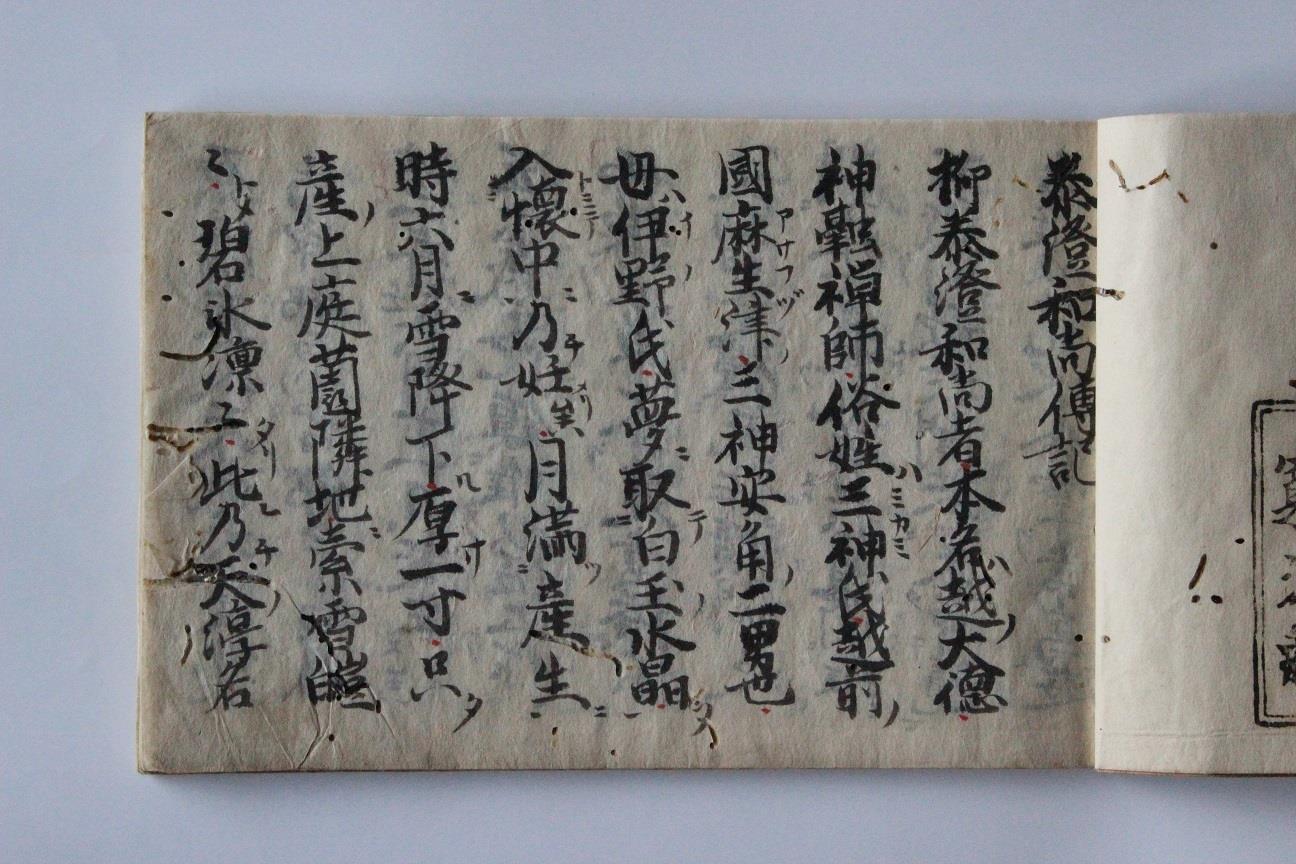 泰澄和尚傳記
抑泰澄和尚者本名越大德
神融禅師俗姓三神氏越前
國麻生津三神安角二男也
母伊野氏夢取白玉水晶
入懷中乃妊月満產生
時六月雪降下厚一寸只
產上庭薗隣地素雪皚
〻碧氷凛〻此乃天渟名